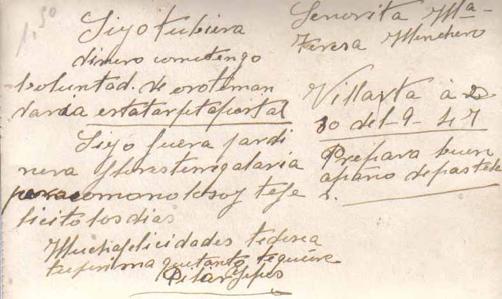 1,50
Si yo tubiera
dinero como tengo
boluntad. de oro te man
daria esta tarjeta postal
Si yo fuera jardi
nera flores te regalaria
pero como no lo soy te fe
licito los dias
Muchas felicidades te desea
tu prima que tanto te quiere
Pilar Yepes
Señorita Mª
Teresa Minchero
Villarta à 2
30 del 9-47
Prepara buen
apaño de pastele
s.